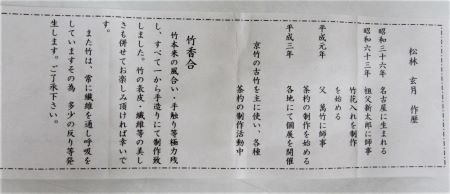 松林 玄月 作歴
昭和三十六年 名古屋に生まれる
昭和六十三年 祖父新太郎に師事
竹花入れを制作
を始める
平成元年 父 萬竹に師事
茶杓の制作を始める
平成三年 各地にて個展を開催
京竹の古竹を主に使い、各種
茶杓の制作活動中
竹香合
竹本来の風合い・手触り等極力残
し、すべて一から手造りにて制作致
しました。竹の表皮、繊維等の美し
さも併せてお楽しみ頂ければ幸いで
す。
また竹は、常に繊維を通し呼吸を
していますその為 多少の反り等発
生します。ご了承下さい。